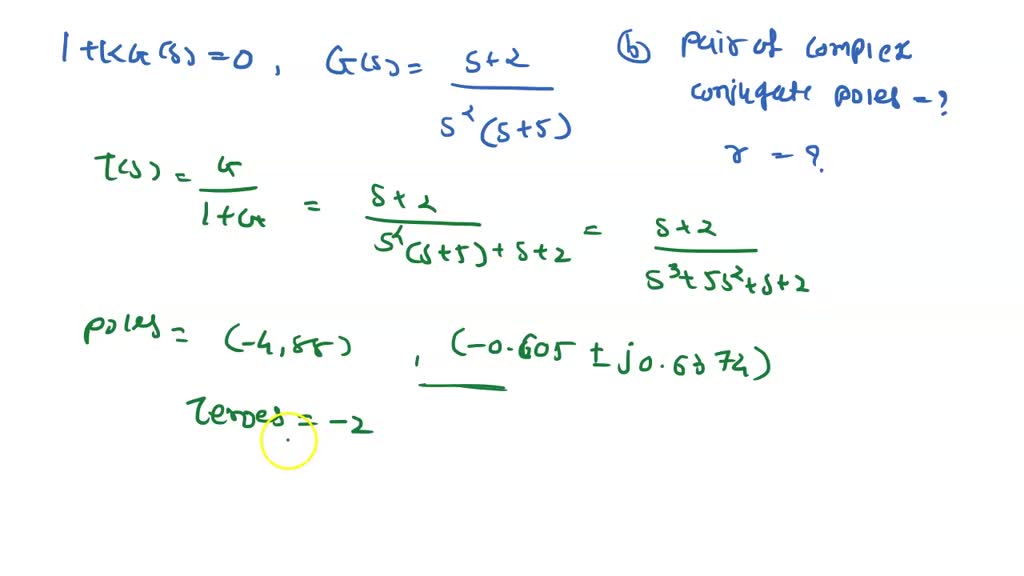 1+KG(s)=0, G(s) = s+2 / s²(s+5)
(b) Pair of complex
conjugate poles = ?
r = ?
T(s) = G / 1+G = s+2 / s²(s+5)+s+2 = s+2 / s³+5s²+s+2
poles = (-4,88), (-0.605 ± j0.6374)
Zeroes = -2